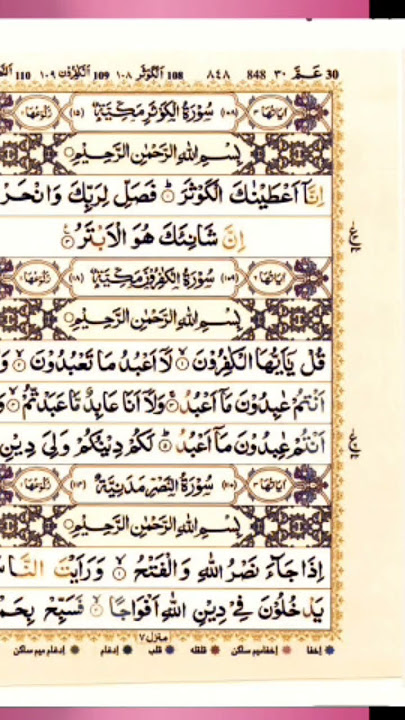 30 عَمَّ ٣٠ 848 ٨٤٨ 108 اَلْكَوْثَر ١٠٨ 109 اَلْكٰفِرُوْن ١٠٩ 110
اٰيَاتُهَا ٣ (١٠٨) سُوْرَةُ الْكَوْثَرِ مَكِّيَّةٌ (١٥) رُكُوْعُهَا ١
بِسْمِ اللّٰهِ الرَّحْمٰنِ الرَّحِيْمِ
اِنَّاۤ اَعْطَيْنٰكَ الْكَوْثَرَ ؕ ١ فَصَلِّ لِرَبِّكَ وَانْحَرْ
اِنَّ شَانِئَكَ هُوَ الْاَبْتَرُ ٣
ع
اٰيَاتُهَا ٦ (١٠٩) سُوْرَةُ الْكٰفِرُوْنَ مَكِّيَّةٌ (١٨) رُكُوْعُهَا ١
بِسْمِ اللّٰهِ الرَّحْمٰنِ الرَّحِيْمِ
قُلْ يٰۤاَيُّهَا الْكٰفِرُوْنَ ۙ ١ لَاۤ اَعْبُدُ مَا تَعْبُدُوْنَ ۙ ٢ وَ
اَنْتُمْ عٰبِدُوْنَ مَاۤ اَعْبُدُ ۚ ٣ وَلَاۤ اَنَا عَابِدٌ مَّا عَبَدْتُّمْ ۙ ٤ وَ
اَنْتُمْ عٰبِدُوْنَ مَاۤ اَعْبُدُ ؕ ٥ لَكُمْ دِيْنُكُمْ وَلِيَ دِيْنِ
ع
اٰيَاتُهَا ٣ سُوْرَةُ النَّصْرِ مَدَنِيَّةٌ (١١٤) رُكُوْعُهَا ١
بِسْمِ اللّٰهِ الرَّحْمٰنِ الرَّحِيْمِ
اِذَا جَآءَ نَصْرُ اللّٰهِ وَالْفَتْحُ ۙ ١ وَرَاَيْتَ النَّاسَ
يَدْخُلُوْنَ فِيْ دِيْنِ اللّٰهِ اَفْوَاجًا ۙ ٢ فَسَبِّحْ بِحَمْ
منزل ٧
إخفا إخفاميم ساكن قلقله قلب إدغام إدغام ميم ساكن